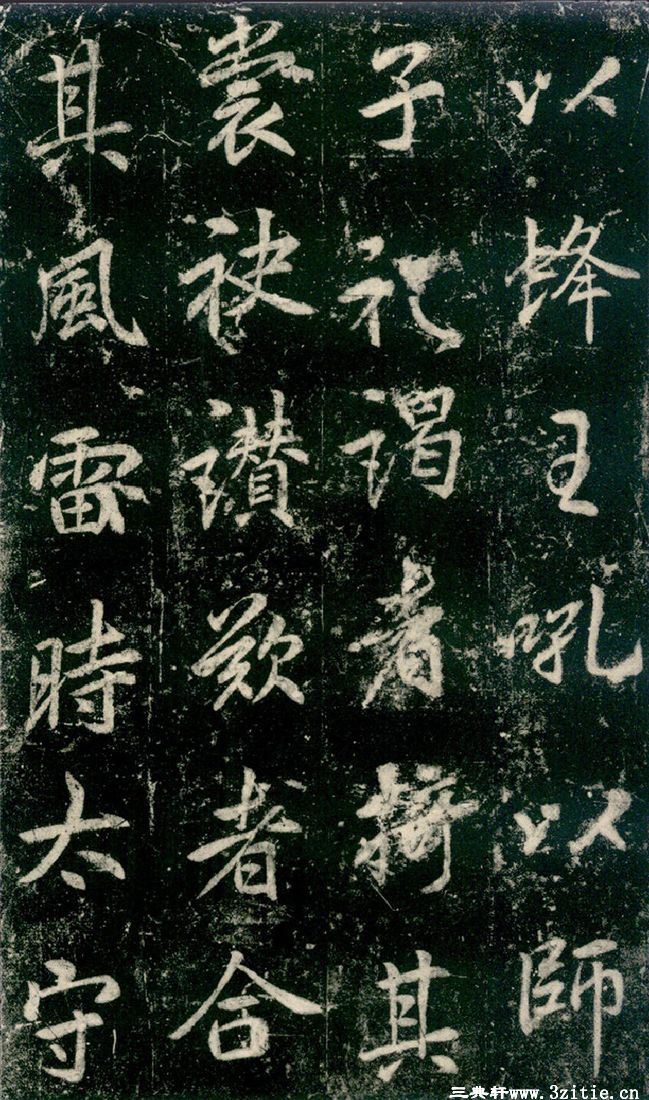 以蜂王吼以師
子礼謁者其
裳袂讚歎者合
其風雷時太守
三典轩www.3zitie.cn